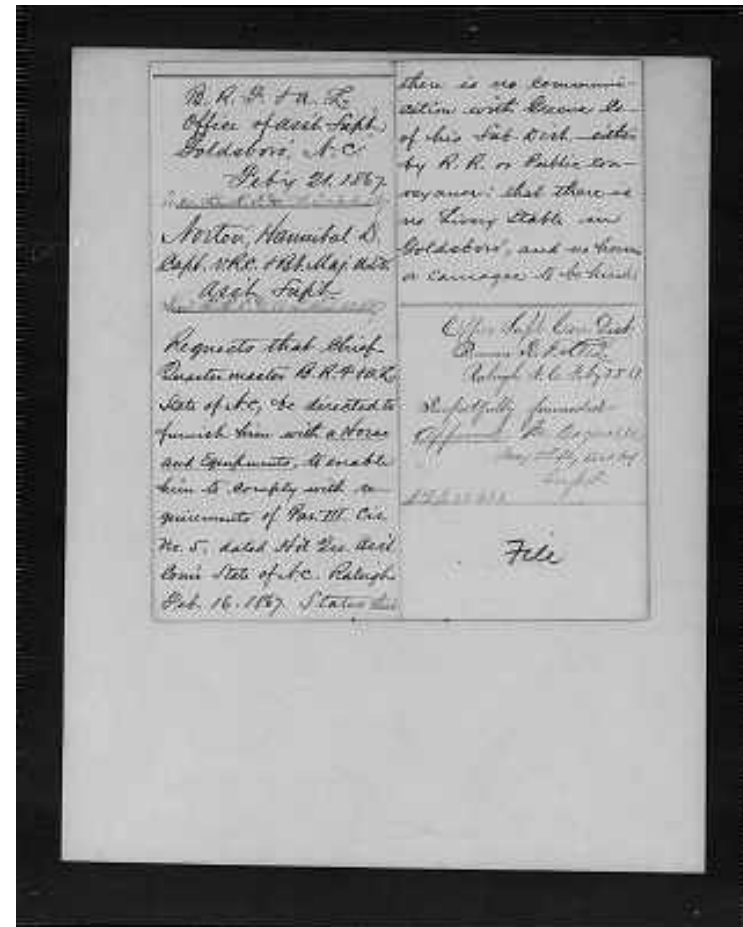 B. R. F. & A. L.
Office of Asst Supt
Goldsboro, N.C.
Feb'y 21. 1867
Norton, Hannibal D.
Capt. V.R.C. & Bt. Maj. U.S.V.
Asst Supt.
Requests that Chief
Quartermaster B.R.F. & A.L.
State of N.C., be directed to
furnish him with a Horse
and Equipments, to enable
him to comply with re-
quirements of Par. III Cir
No. 5. dated Hd Qrs. Asst
Com'r State of N.C. Raleigh
Feb. 16. 1867. States that
there is no communi-
cation with Co.
of his Sub Dist. either
by R.R. or Public con-
veyance: that there is
no Livery Stable in
Goldsboro, and no horse
or carriage to be hired.
Office Supt Dist
Raleigh N.C. Feby
Respectfully forwarded
Approved
Supt
File